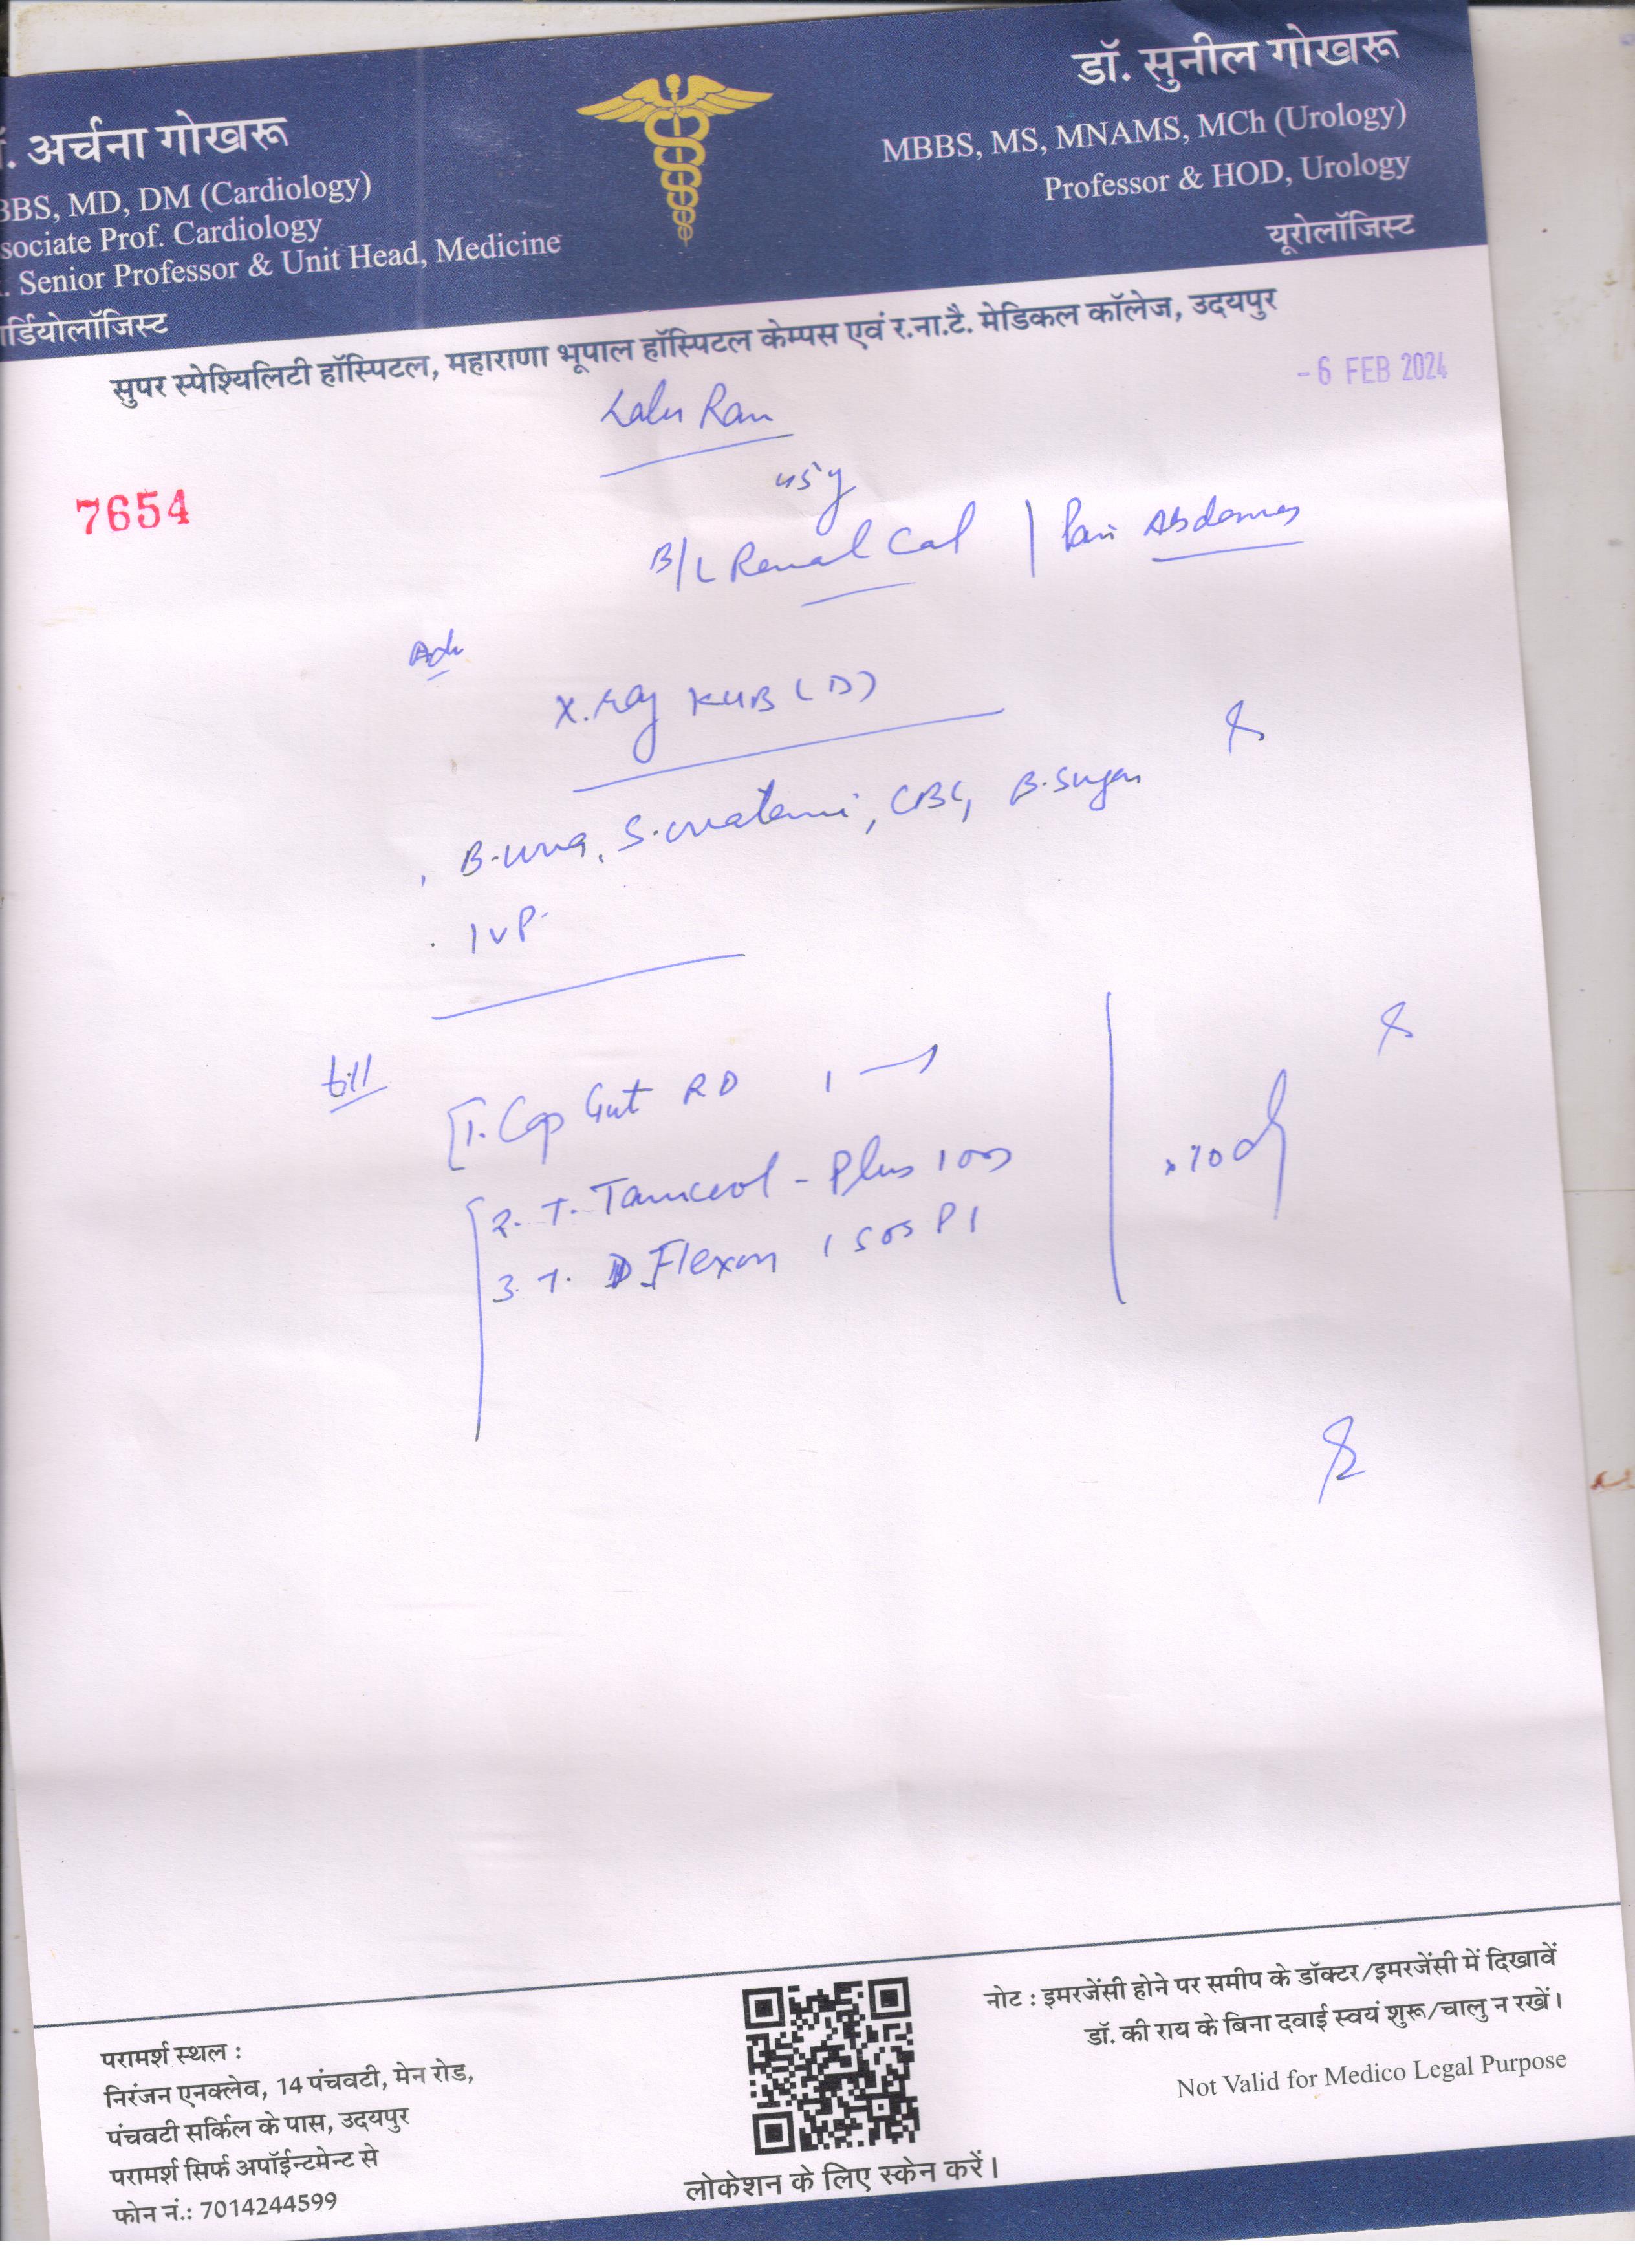 . अर्चना गोखरू
BBS, MD, DM (Cardiology)
sociate Prof. Cardiology
. Senior Professor & Unit Head, Medicine
ार्डियोलॉजिस्ट
डॉ. सुनील गोखरू
MBBS, MS, MNAMS, MCh (Urology)
Professor & HOD, Urology
यूरोलॉजिस्ट
सुपर स्पेश्यिलिटी हॉस्पिटल, महाराणा भूपाल हॉस्पिटल केम्पस एवं र.ना.टै. मेडिकल कॉलेज, उदयपुर
- 6 FEB 2024
Ram
7654
45 y
B/L Renal Cal | Pain Abdomen
Adv
X.ray KUB (D)
B.urea, S.creatinine, CBC, B.Sugar
IVP
1. Cap Gut RD 1
2. T. - Plus 1 OD
3. T. D Flexon 1 SOS
x 10 d
परामर्श स्थल :
निरंजन एनक्लेव, 14 पंचवटी, मेन रोड,
पंचवटी सर्किल के पास, उदयपुर
परामर्श सिर्फ अपॉईन्टमेन्ट से
फोन नं.: 7014244599
लोकेशन के लिए स्केन करें।
नोट : इमरजेंसी होने पर समीप के डॉक्टर/इमरजेंसी में दिखावें
डॉ. की राय के बिना दवाई स्वयं शुरू/चालु न रखें।
Not Valid for Medico Legal Purpose